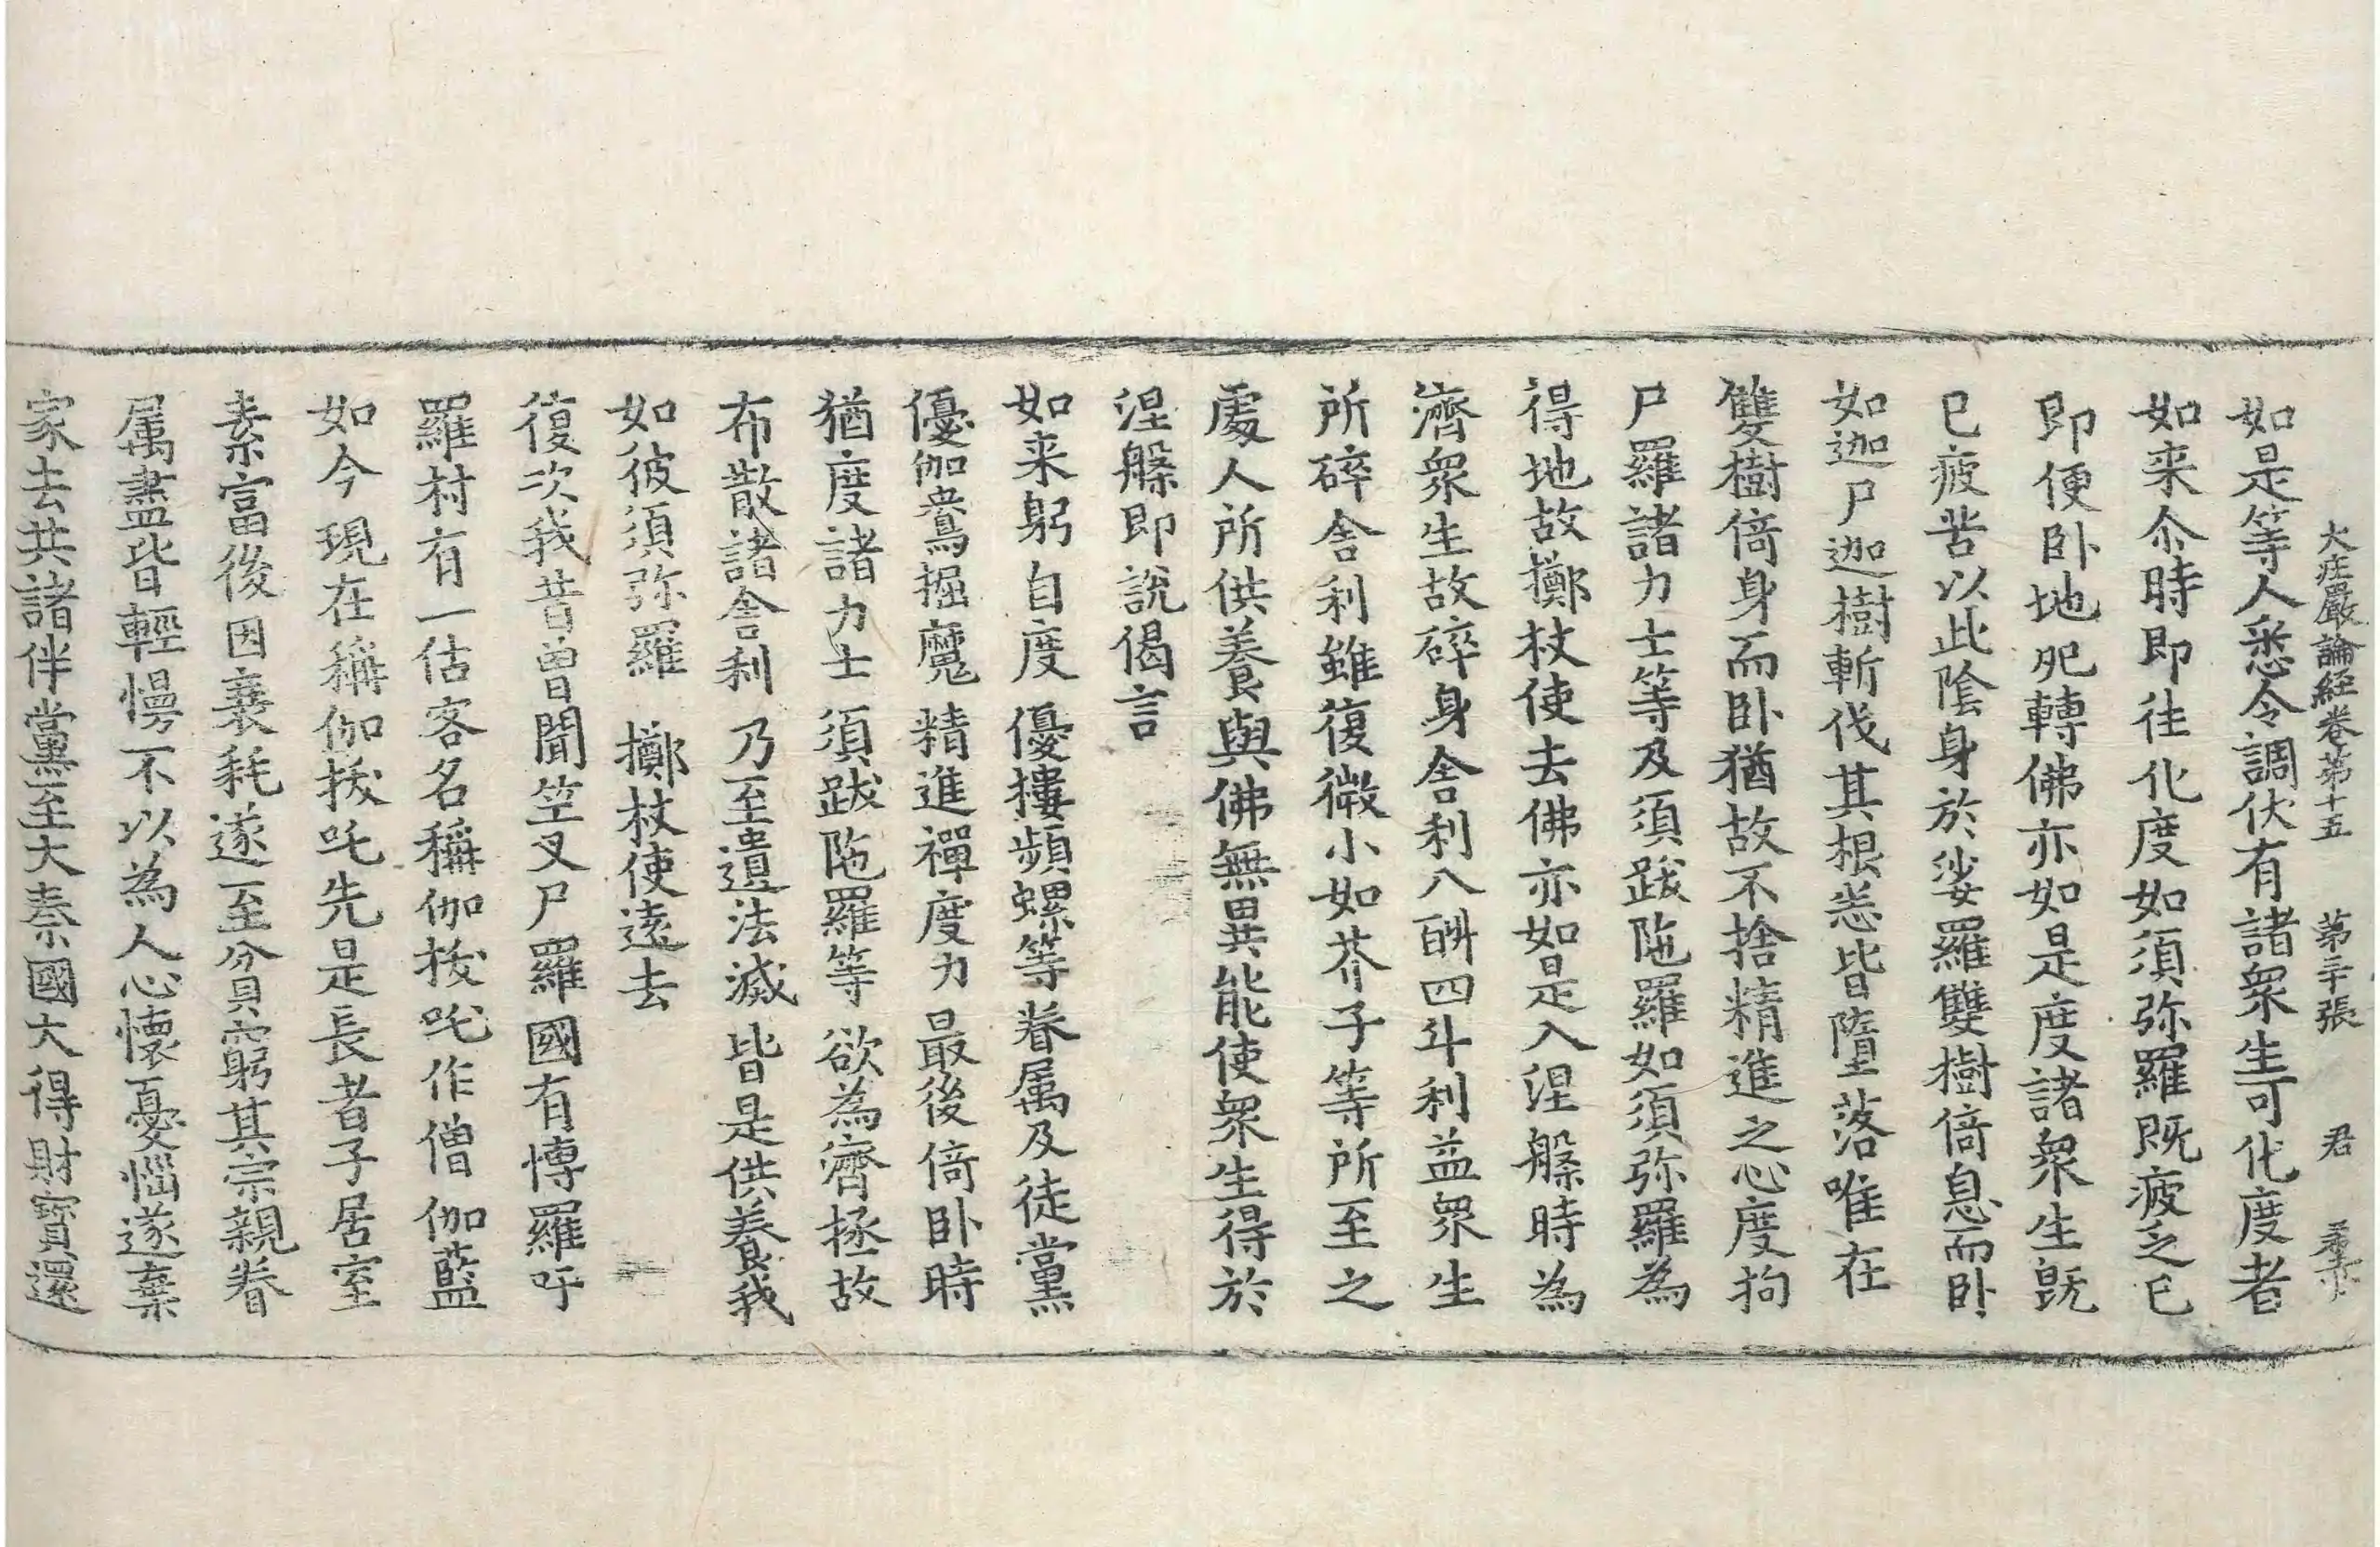 大庄嚴論経卷第十五 第二十張 君
如是等人悉令調伏有諸衆生可化度者
如来尒時即往化度如須弥羅既疲乏已
即便卧地死轉佛亦如是度諸衆生旣
已疲苦以此陰身於娑羅雙樹倚息而卧
如迦尸迦樹斬伐其根悉皆墮落唯在
雙樹倚身而卧猶故不捨精進之心度拘
尸羅諸力士等及須跋陁羅如須弥羅為
得地故擲杖使去佛亦如是入涅槃時為
濟衆生故碎身舍利八斛四斗利益衆生
所碎舍利雖復微小如芥子等所至之
處人所供養與佛無異能使衆生得於
涅槃即說偈言
如来躬自度 優摟頻螺等 眷属及徒黨
優伽鴦掘魔 精進禪度力 最後倚卧時
猶度諸力士 須跋陁羅等 欲為濟拯故
布散諸舍利 乃至遺法滅 皆是供養我
如彼須弥羅 擲杖使逺去
復次我昔曽聞竺叉尸羅國有博羅吁
羅村有一估客名稱伽拔吒作僧伽藍
如今現在稱伽拔吒先是長者子居室
素富後因衰耗遂至貧窮其宗親眷
属盡皆輕慢不以為人心懷憂惱遂棄
家去共諸伴黨至大秦國大得財寳還